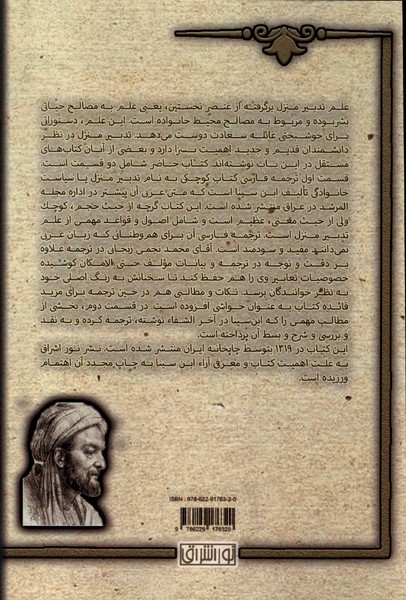 علم تدبیر منزل برگرفته از عنصر نخستین، یعنی علم به مصالح حیاتی
بشربوده و مربوط به مصالح محیط خانواده است. این علم، دستوراتی
برای خوشبختی عائله سعادت دوست می‌دهد. تدبیر منزل در نظر
دانشمندان قدیم و جدید اهمیت بسزا دارد و بعضی از آنان کتاب‌های
مستقل در این باب نوشته‌اند. کتاب حاضر شامل دو قسمت است.
قسمت اول ترجمه فارسی کتاب کوچکی به نام تدبیر منزل یا سیاست
خانوادگی تألیف ابن سینا است که متن عربی آن پیشتر در اداره مجله
المرشد در عراق منتشر شده است. این کتاب گرچه از حیث حجم، کوچك
ولی از حیث معنی، عظیم است و شامل اصول و قواعد مهمی از علم
تدبیر منزل است. ترجمه فارسی آن برای هم‌وطنانی که زبان عربی
نمی‌دانند مفید و سودمند است. آقای محمد نجمی زنجانی در ترجمه علاوه
بر دقت و توجه در ترجمه و بیانات مؤلف حتی الامکان کوشیده
خصوصیات تعابیر وی را هم حفظ کند تا سخنانش به رنگ اصلی خود
به نظر خوانندگان برسد. نکات و مطالبی هم در حین ترجمه برای مزید
فائده کتاب به عنوان حواشی افزوده است. در قسمت دوم، بخشی از
مطالب مهمی را که ابن‌سینا در آخر الشفاء نوشته، ترجمه کرده و به نقد
و بررسی و شرح و بسط آن پرداخته است.
این کتاب در ۱۳۱۹ بتوسط چاپخانه ایران منتشر شده است. نشر نور اشراق
به علت اهمیت کتاب و معرفی آراء ابن سینا به چاپ مجدد آن اهتمام
ورزیده است.
ISBN : 978-622-91763-2-0
9 786229 176320
نور اشراق